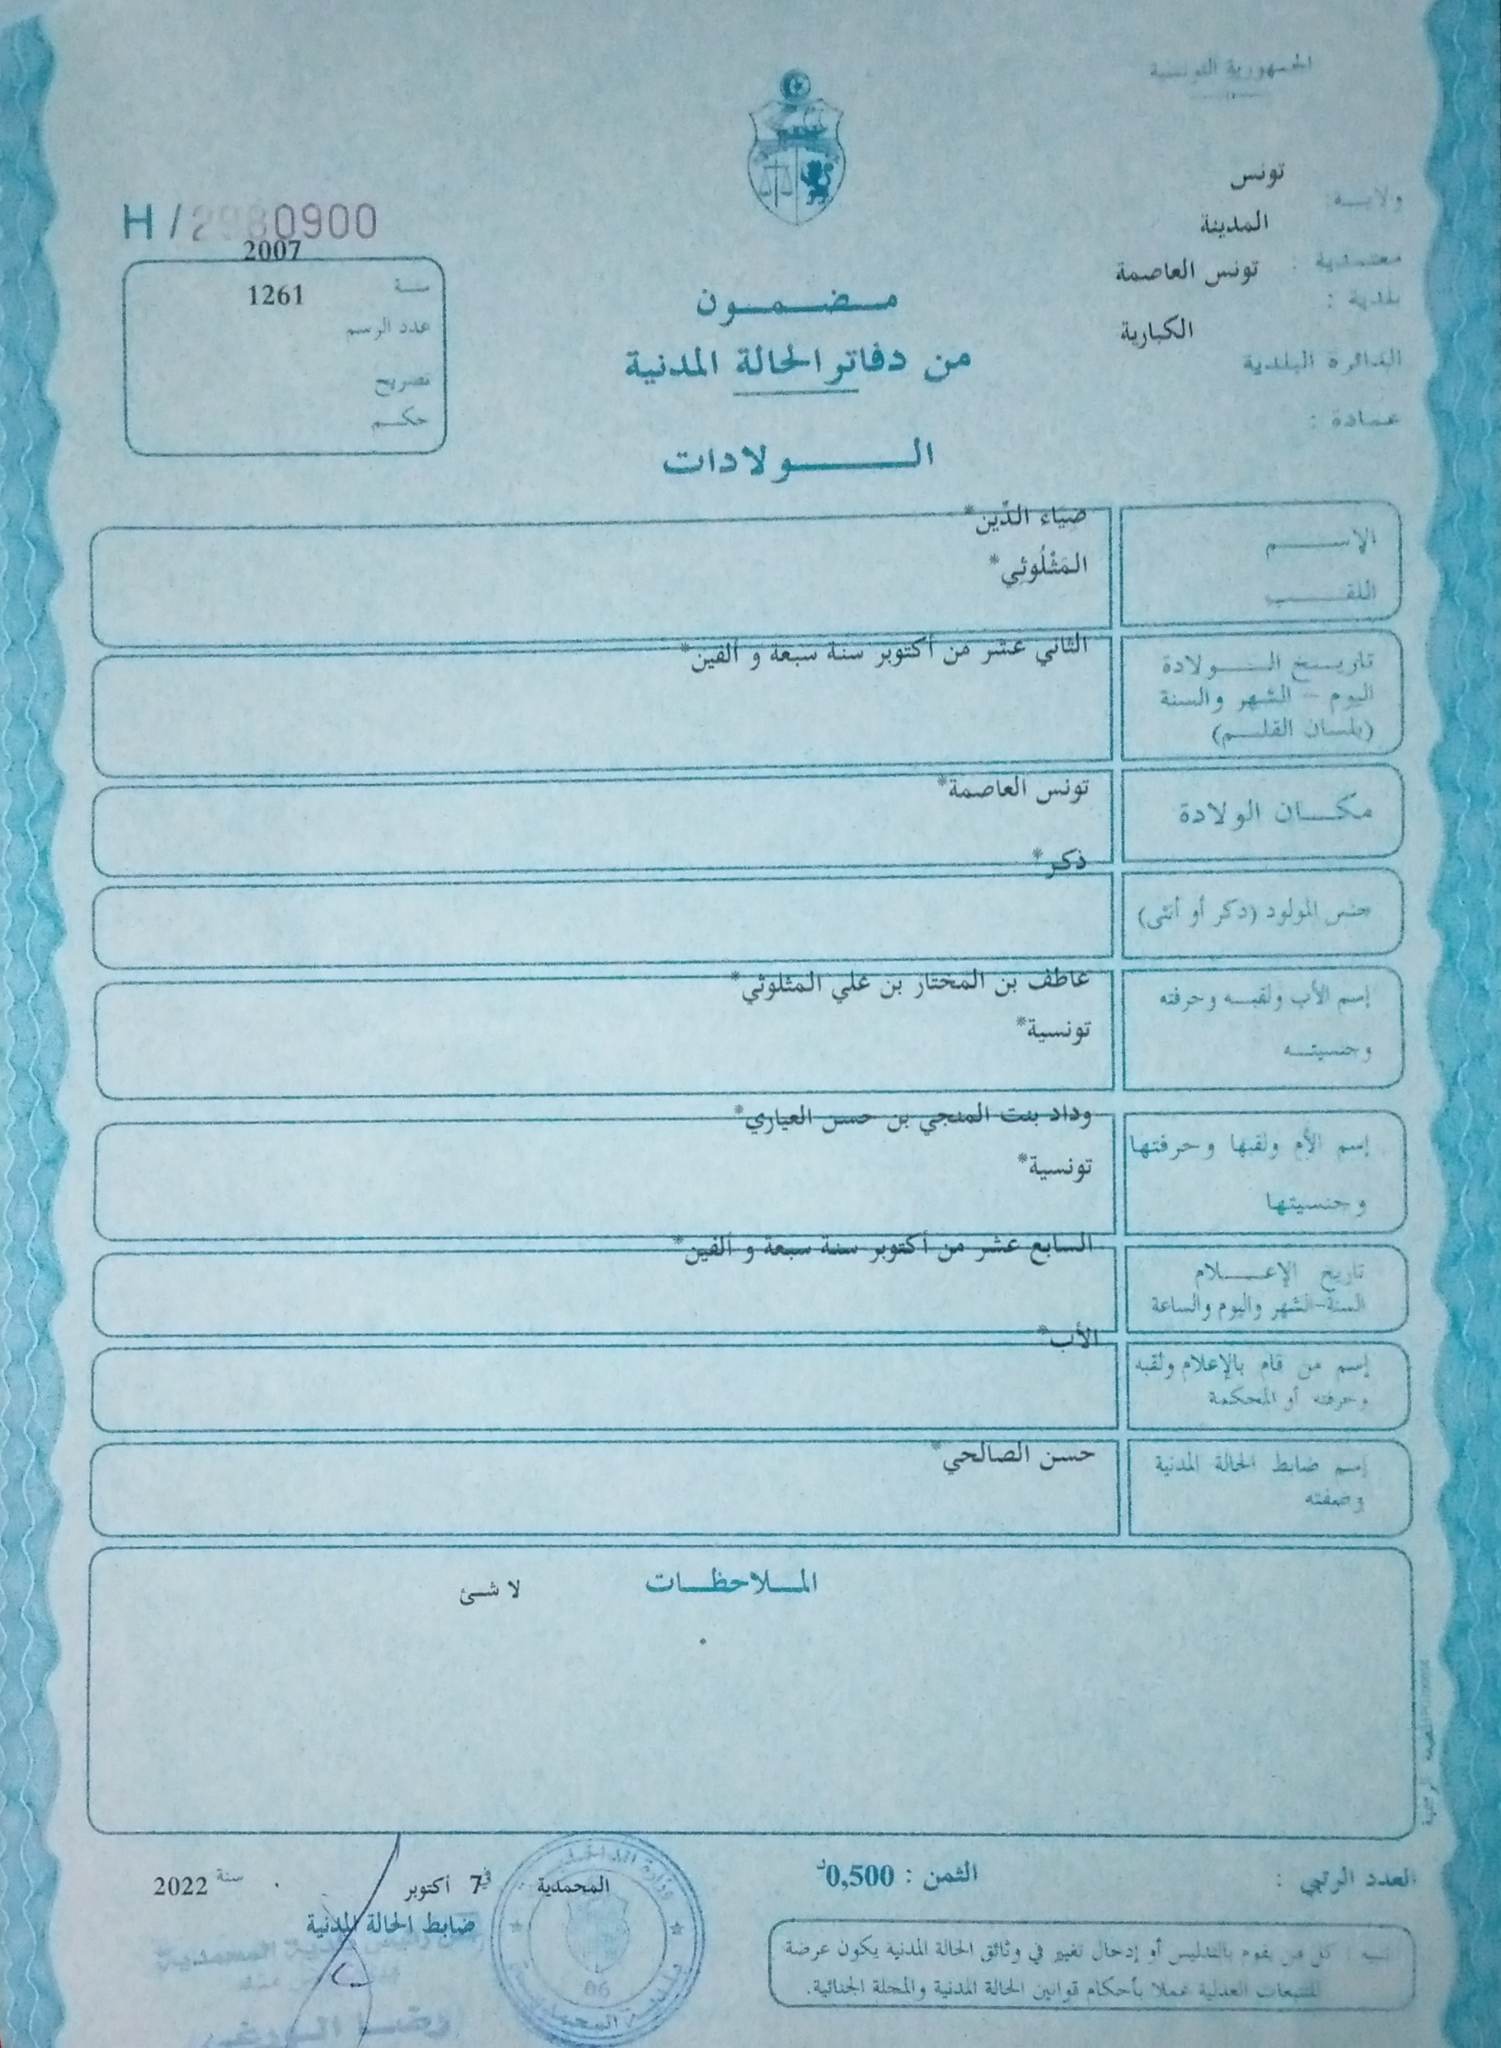 الجمهورية التونسية
ولاية: تونس
معتمدية : المدينة
بلدية : تونس العاصمة
الدائرة البلدية الكبارية
عمادة :
H / 2980900
سنة 2007
عدد الرسم 1261
تصريح
حكم
مضمون
من دفاتر الحالة المدنية
الولادات
الإسم ضياء الدّين*
اللقب المَثْلُوثِي*
تاريخ الولادة الثاني عشر من أكتوبر سنة سبعة و ألفين*
اليوم - الشهر والسنة
(بلسان القلم)
مكان الولادة تونس العاصمة*
جنس المولود (ذكر أو أنثى) ذكر*
إسم الأب ولقبه وحرفته عاطف بن المختار بن علي المثلوثي*
وجنسيته تونسية*
إسم الأم ولقبها وحرفتها وداد بنت المنجي بن حسن العياري*
وجنسيتها تونسية*
تاريخ الإعلام السابع عشر من أكتوبر سنة سبعة و ألفين*
السنة-الشهر واليوم والساعة
إسم من قام بالإعلام ولقبه الأب*
وحرفته أو المحكمة
إسم ضابط الحالة المدنية حسن الصالحي*
وصفته
الملاحظات لا شئ
العدد الرتبي :
الثمن : 0,500د
المحمدية في 7 أكتوبر سنة 2022
ضابط الحالة المدنية
تنبيه : كل من يقوم بالتدليس أو إدخال تغيير في وثائق الحالة المدنية يكون عرضة
للتتبعات العدلية عملا بأحكام قوانين الحالة المدنية والمجلة الجنائية.
وزارة الداخلية
06